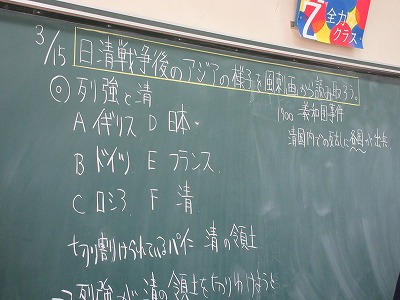 7 全力
クラス
3/15 日清戦争後のアジアの様子を風刺画から読み取ろう。
◎ 列強と清
A イギリス D 日本
B ドイツ E フランス
C ロシア F 清
1900 義和国事件
清国内での
切り割けられているパイ= 清の領土
→ 列強が清の領土を